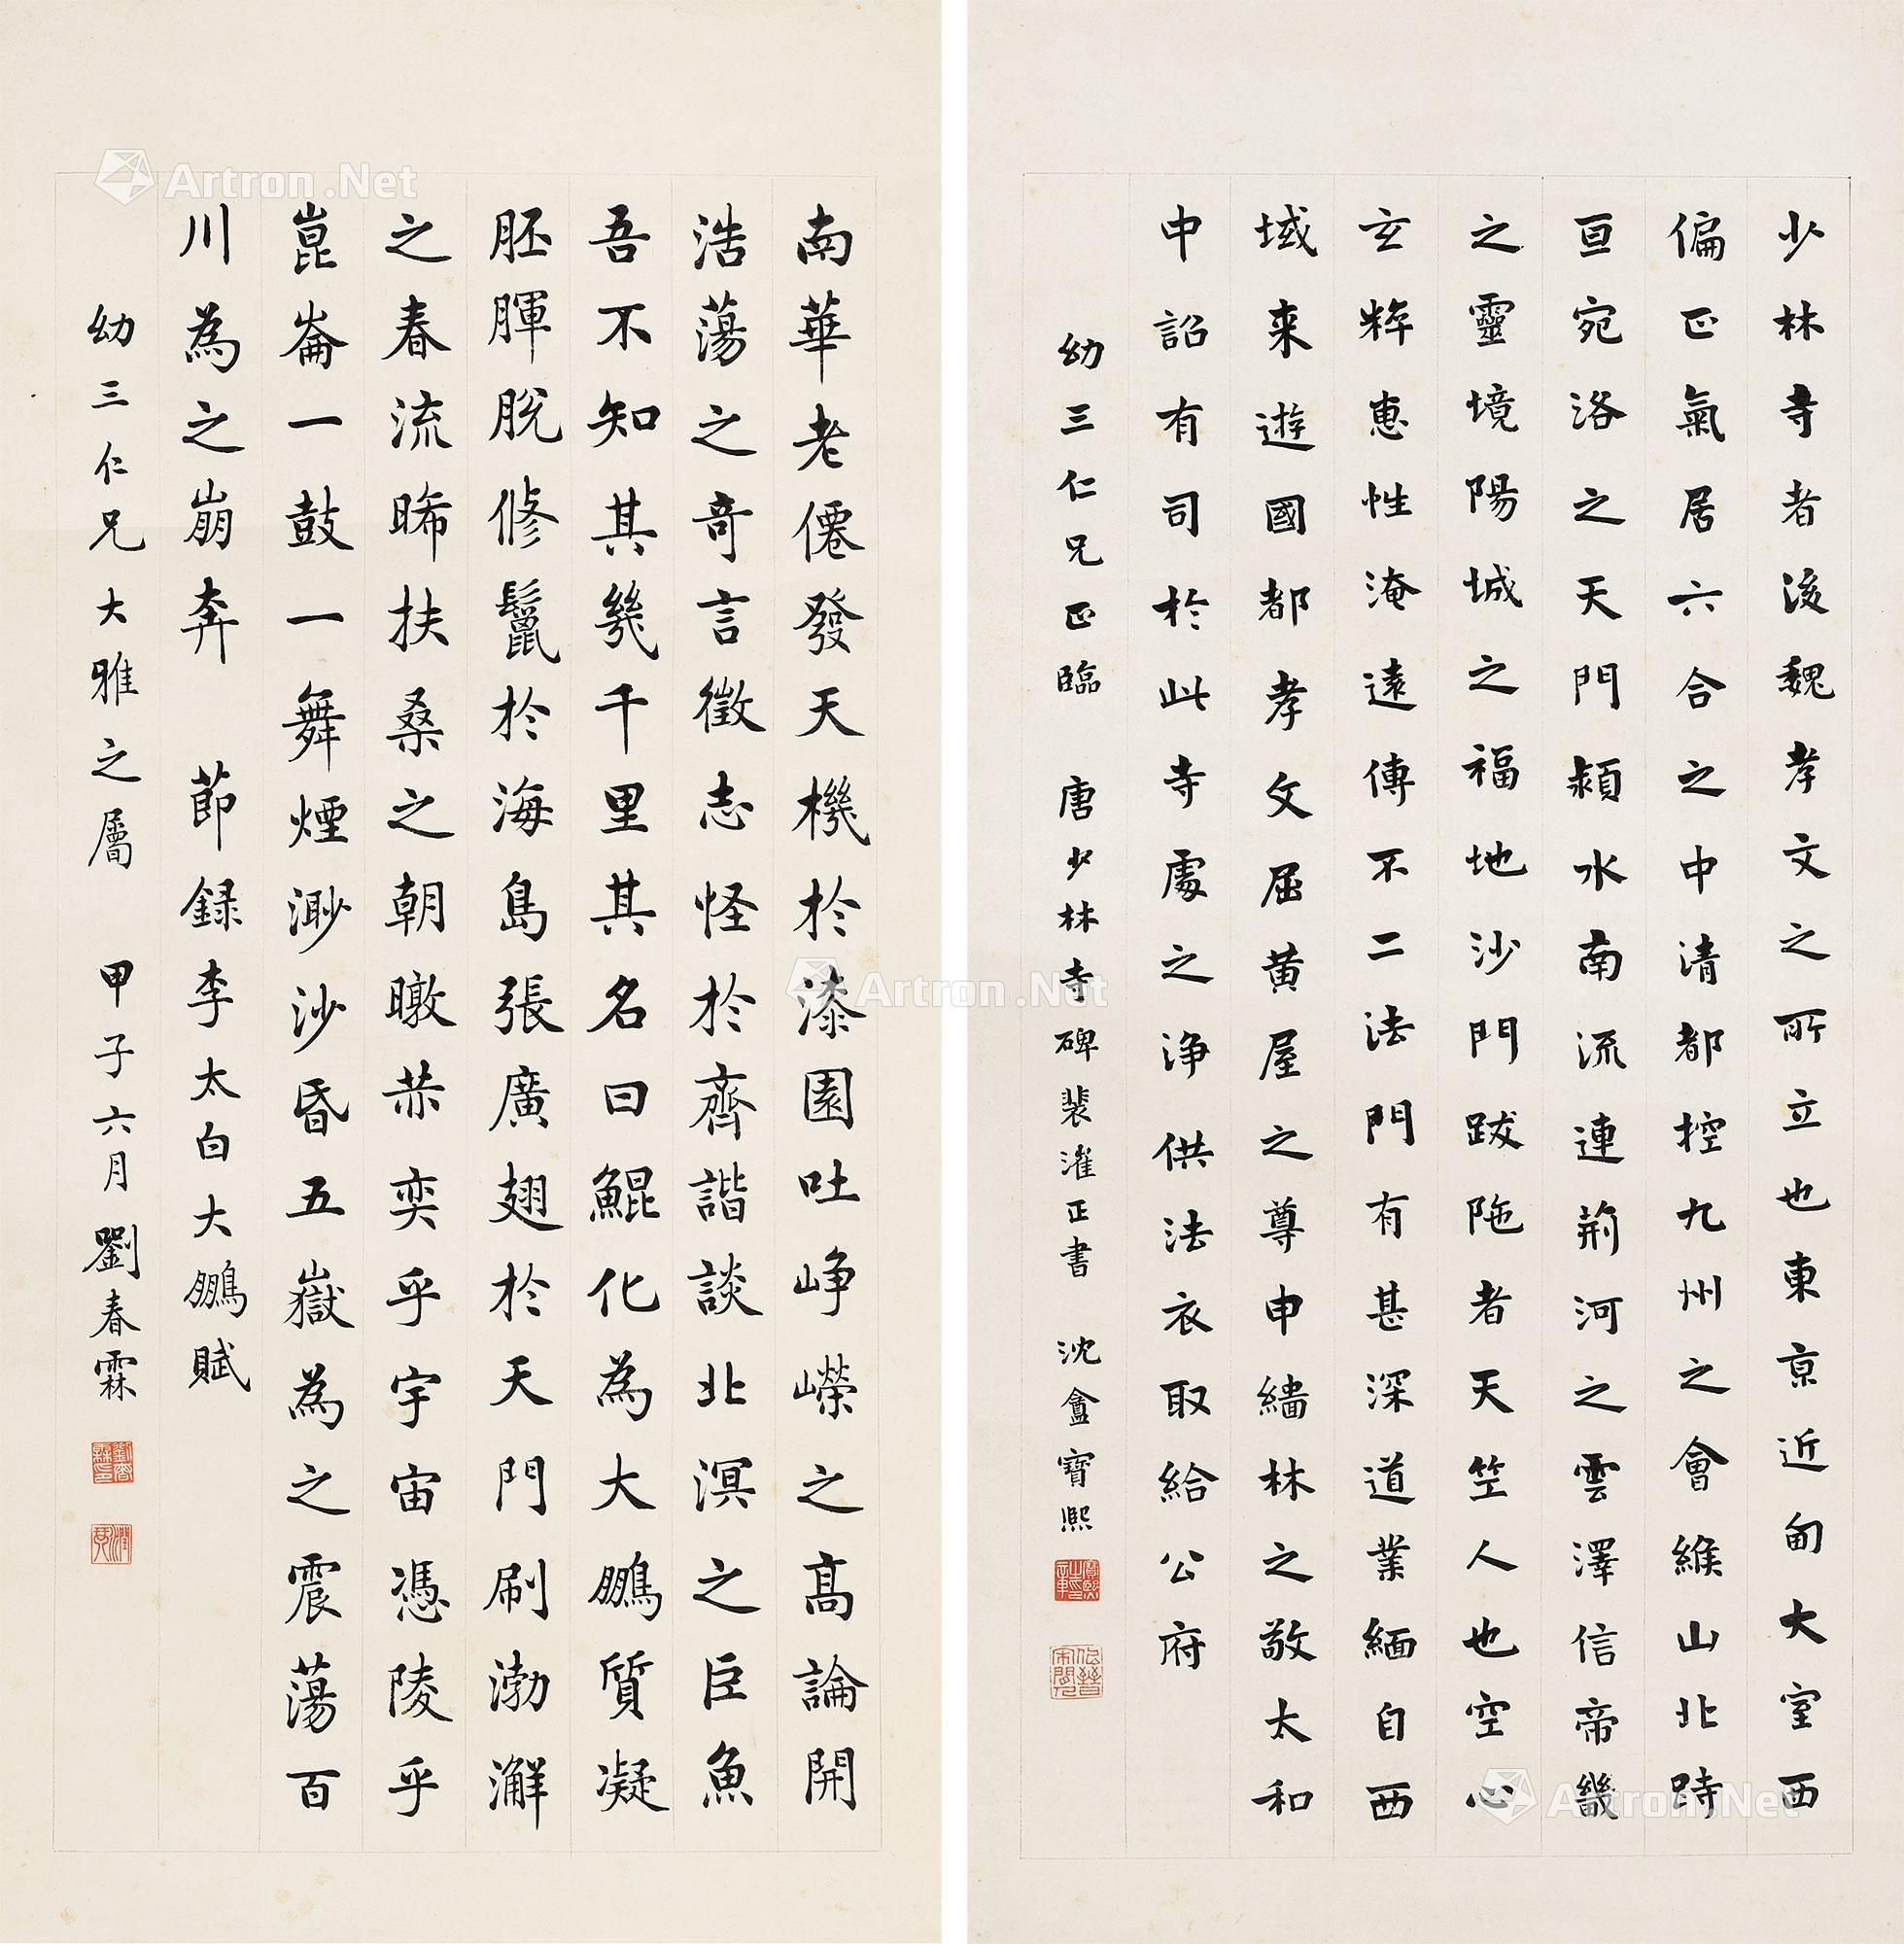 少林寺者後魏孝文之所立也東京近甸大室西
偏正氣居六合之中清都控九州之會緱山北跱
亘宛洛之天門潁水南流連荊河之雲澤信帝畿
之靈境陽城之福地沙門跋陁者天竺人也空心
玄粹惠性淹遠傳不二法門有甚深道業緬自西
域來遊國都孝文屈黃屋之尊申緇林之敬太和
中詔有司於此寺處之淨供法衣取給公府
幼三仁兄正臨 唐少林寺碑裴漼正書 沈盦寶熙
寶熙之印章
南華老僊發天機於漆園吐崢嶸之高論開
浩蕩之奇言徵志怪於齊諧談北溟之巨魚
吾不知其幾千里其名曰鯤化為大鵬質凝
胚腪脫修鬣於海島張廣翅於天門刷渤澥
之春流晞扶桑之朝暾恭奕乎宇宙憑陵乎
崑崙一鼓一舞煙渺沙昏五嶽為之震蕩百
川為之崩奔 節録李太白大鵬賦
幼三仁兄大雅之屬 甲子六月劉春霖
劉春霖印
潤琴
Artron.Net
Artron.Net
Artron.Net